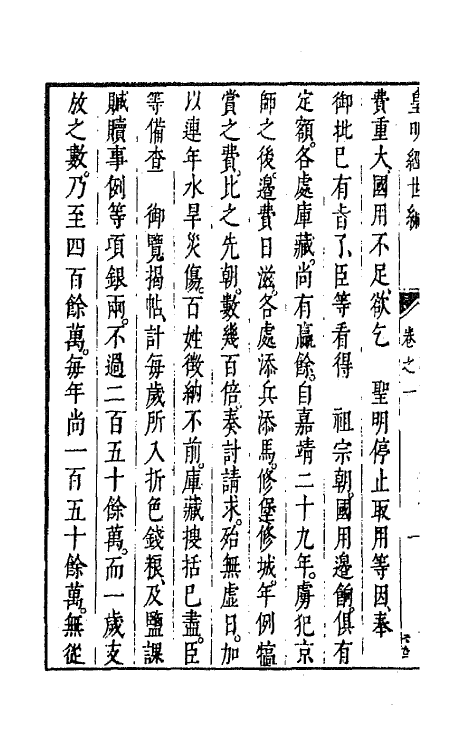 皇明經世編
卷之一
一
費重大、國用不足、欲乞　聖明停止取用等因、奉
御批已有旨了、臣等看得　祖宗朝、國用邊餉、俱有
定額、各處庫藏、尚有贏餘、自嘉靖二十九年、虜犯京
師之後、邊費日滋、各處添兵添馬、修堡修城、年例犒
賞之費、比之先朝、數幾百倍、奏討請求、殆無虛日、加
以連年水旱災傷、百姓徵納不前、庫藏搜括已盡、臣
等備查　御覽揭帖、計每歲所入折色錢糧、及鹽課
贓贖事例等項銀兩、不過二百五十餘萬、而一歲支
放之數、乃至四百餘萬、每年尚一百五十餘萬、無從